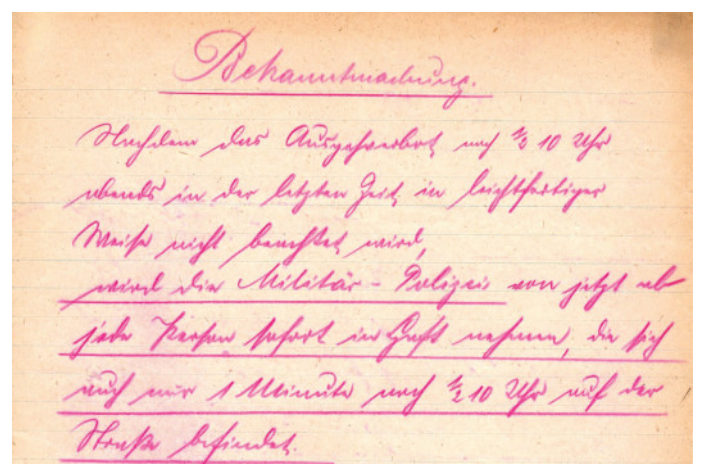 Bekanntmachung.
Nachdem das Ausgehverbot nach ½ 10 Uhr
abends in der letzten Zeit in leichtfertiger
Weise nicht beachtet wird,
wird die Militär-Polizei von jetzt ab
jede Person sofort in Haft nehmen, die sich
auch nur 1 Minute nach ½ 10 Uhr auf der
Straße befindet.